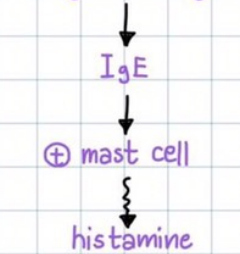 IgE
⊕ mast cell
histamine